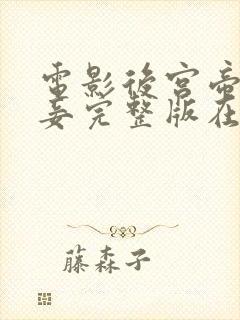 電影後宮帝
妾完整版在
藤森子